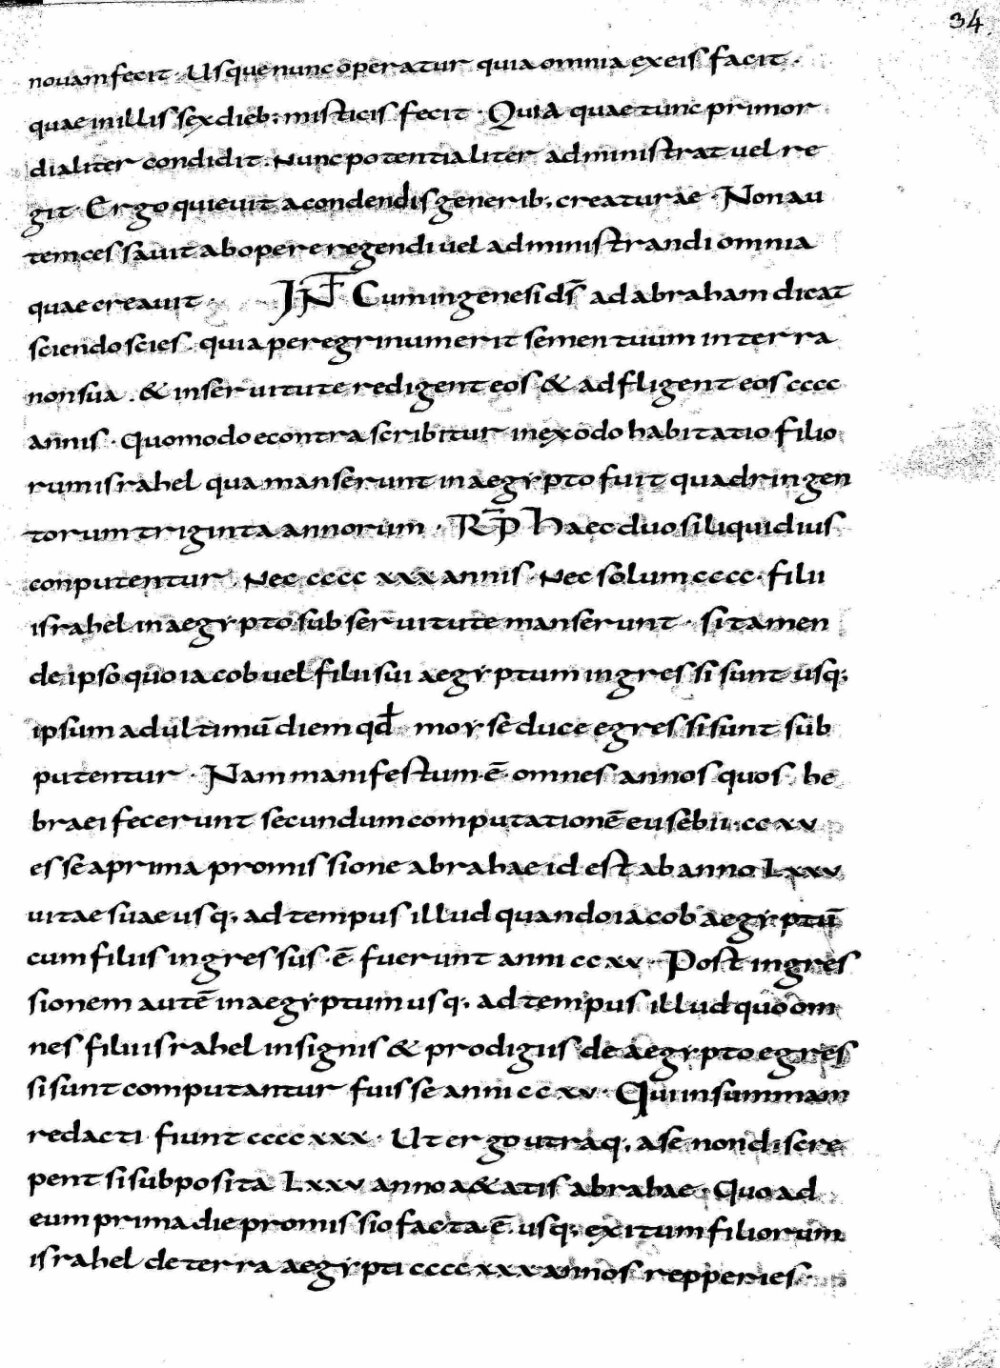 34
novam fecit · Usque nunc operatur quia omnia ex eis facit ·
quae in illis sex dieb; misticis fecit · Quia quae tunc primor
dialiter condidit . Nunc potentialiter administrat vel re
git · Ergo quievit a condendis generib; creaturae · Non au
tem cessavit ab opere regendi vel administrandi omnia
quae creavit · INT̄ Cum in genesi ds̄ ad abraham dicat
sciendo scies . quia peregrinum erit semen tuum in terra
non sua . & in servitute redigent eos & adfligent eos cccc
annis · Quomodo econtra scribitur in exodo habitatio filio
rum israhel qua manserunt in aegypto fuit quadringen
torum triginta annorum · RP̄ Haec duo si liquidius
conputentur . Nec cccc xxx annis . Nec solum cccc · filii
israhel in aegypto sub servitute manserunt · si tamen
de ipso quo iacob vel filii sui aegyptum ingressi sunt usq;
ipsum ad ultimū diem qđ moyse duce egressi sunt sub
putentur · Nam manifestum ē omnes annos quos he
braei fecerunt secundum computationē eusebii · cc xv
esse a prima promissione abrahae id est ab anno Lxxv
vitae suae usq; ad tempus illud quando iacob aegyptū
cum filiis ingressus · ē fuerunt anni cc xv · Post ingres
sionem autē in aegyptum usq; ad tempus illud quo om
nes filii israhel in signis & prodigiis de aegypto egres
si sunt computantur fuisse anni cc xv · Qui in summam
redacti fiunt cccc xxx · Ut ergo utraq; a se non discre
pent si subposita Lxxv anno a&atis abrahae · Quo ad
eum prima die promissio facta ē usq; exitum filiorum
israhel de terra aegypti cccc xxx annos repperies ·